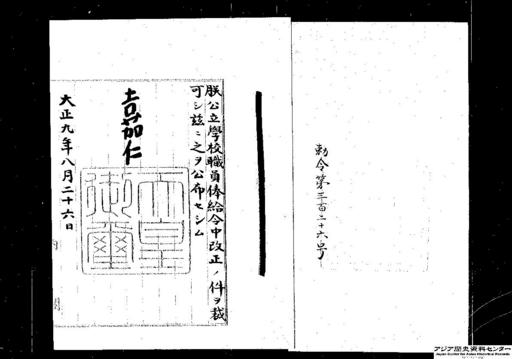 勅令第三百二十六号
朕公立學校職員俸給令中改正ノ件ヲ裁
可シ茲ニ之ヲ公布セシム
嘉仁
天皇
御璽
大正九年八月二十六日
アジア歴史資料センター
Japan Center for Asian Historical Records